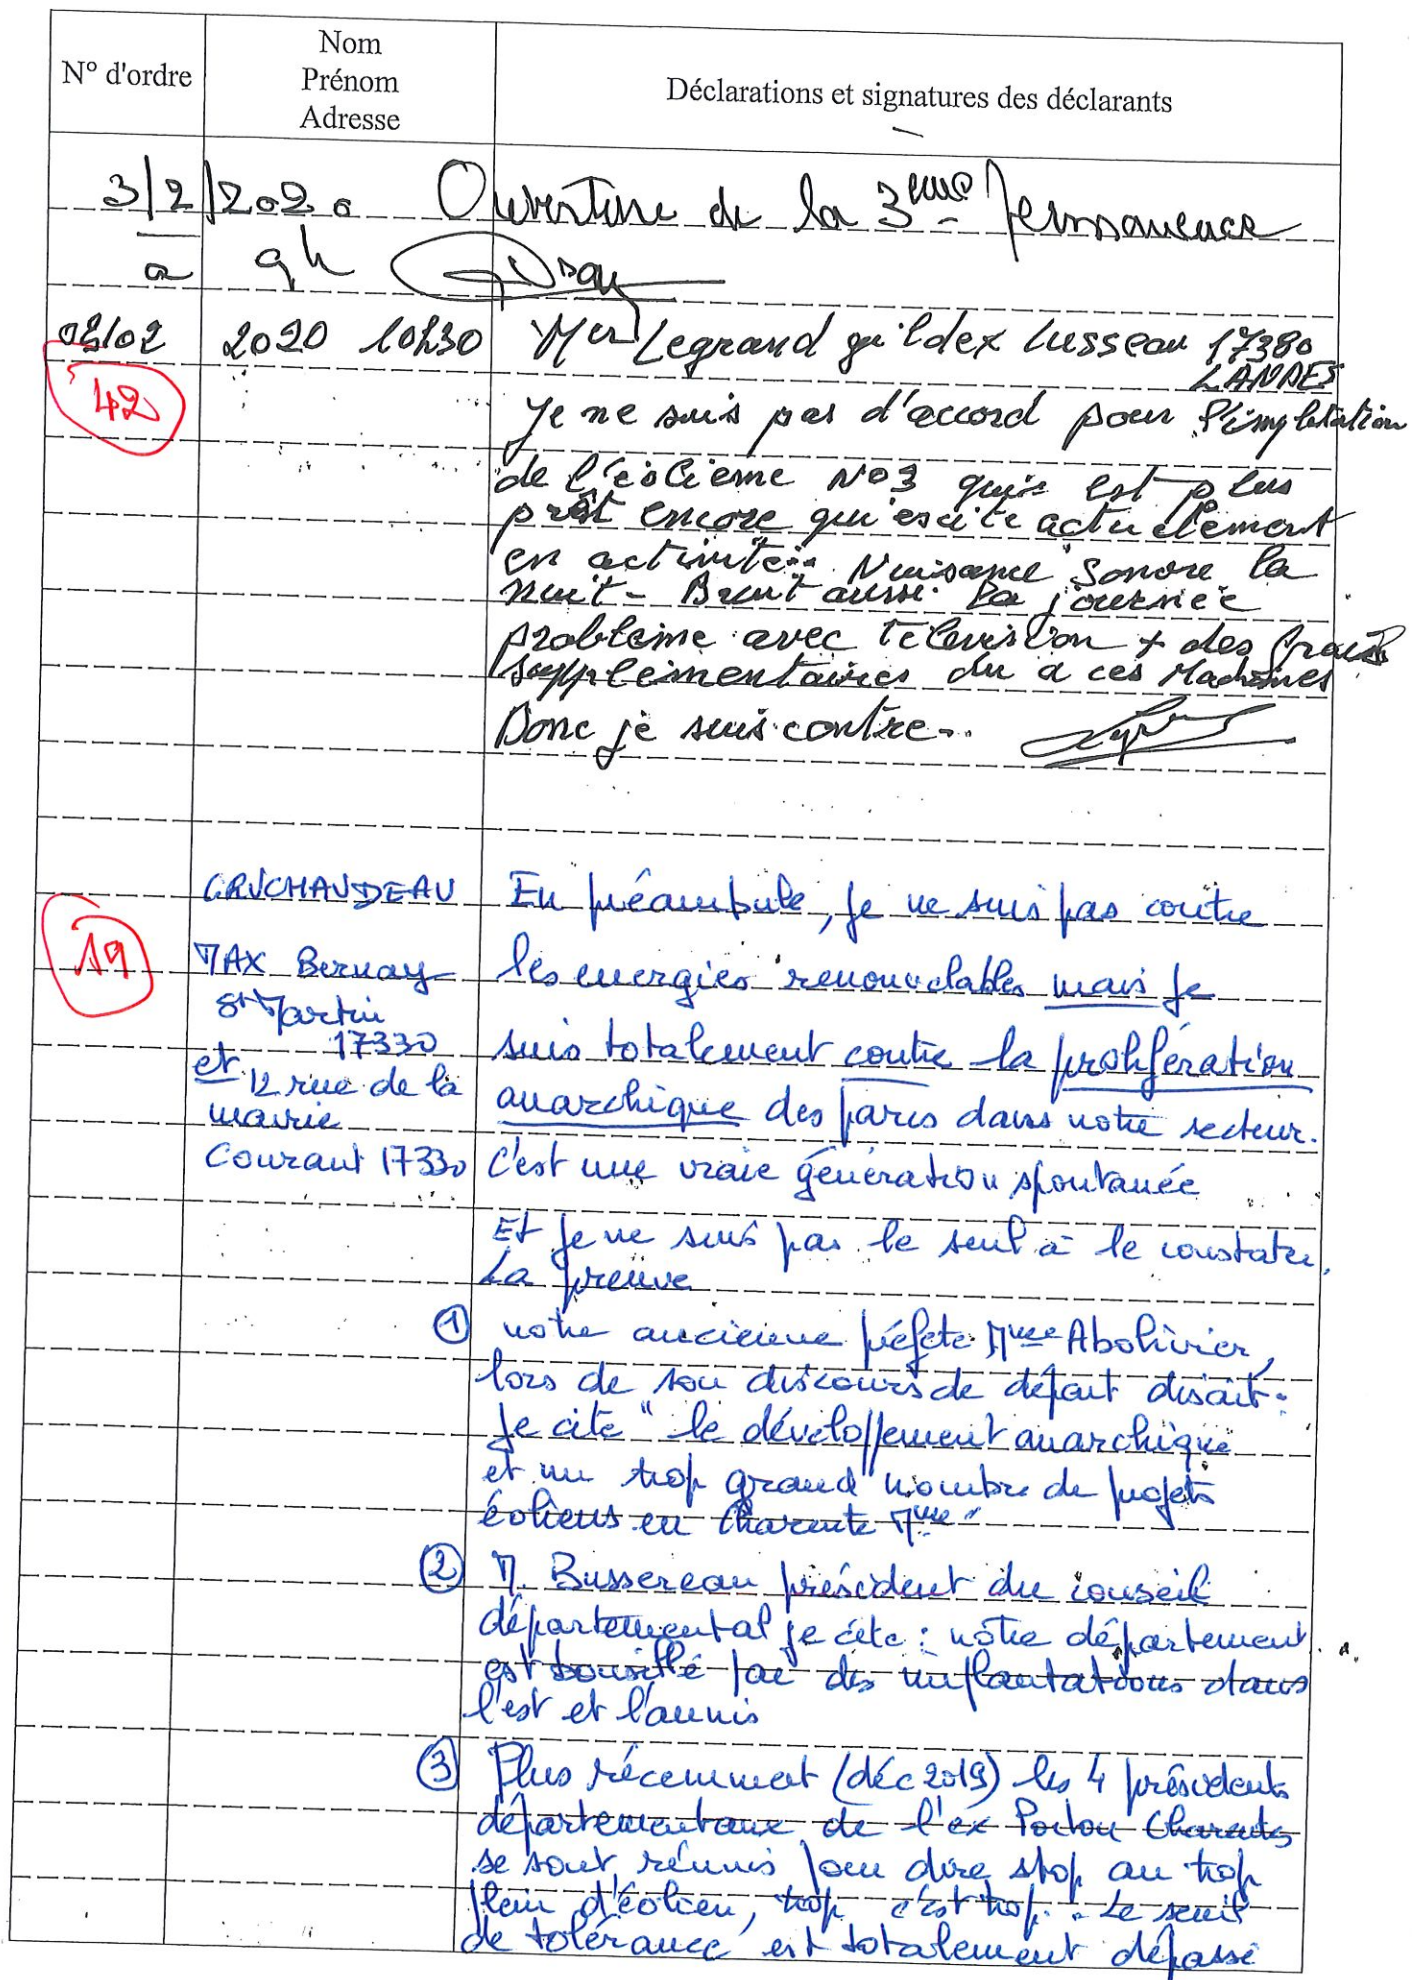 N° d'ordre
Nom
Prénom
Adresse
Déclarations et signatures des déclarants
3/2/2020 Ouverture de la 3ème Permanence
a 9h
03/02 2020 10h30 Mer Legrand gu'ldex Lusseau 17380
LANDES
42
Je ne suis pas d'accord pour l'impletation
de l'éolieme No3 quie est plus
prêt encore qu'exite actuelement
en activité.. Nuisance Sonore la
nuit - Bruit aussi la journée
problème avec télévision + des frais
supplémentaires du a ces Machines
Donc je suis contre..
19
GRUCHAUDEAU
MAX Bernay
St Martin
17330
et 12 rue de la
mairie
Courant 17330
En préambule, je ne suis pas contre
les energies renouvelables mais je
suis totalement contre la prolifération
anarchique des parcs dans notre secteur.
c'est une vraie génération spontanée
Et je ne suis pas le seul à le constater.
La preuve
① notre ancienne préfete Mme Abolivier,
lors de son discours de départ disait :
Je cite " le développement anarchique
et un trop grand nombre de projets
éoliens en Charente Mme "
② M. Bussereau président du conseil
départemental je cite : notre département
est bousillé par des implantations dans
l'est et l'aunis
③ Plus récemment (déc 2019) les 4 présidents
départementaux de l'ex Poitou Charentes
se sont réunis pour dire stop au trop
plein d'éolien, trop c'est trop. Le seuil
de tolérance est totalement dépassé